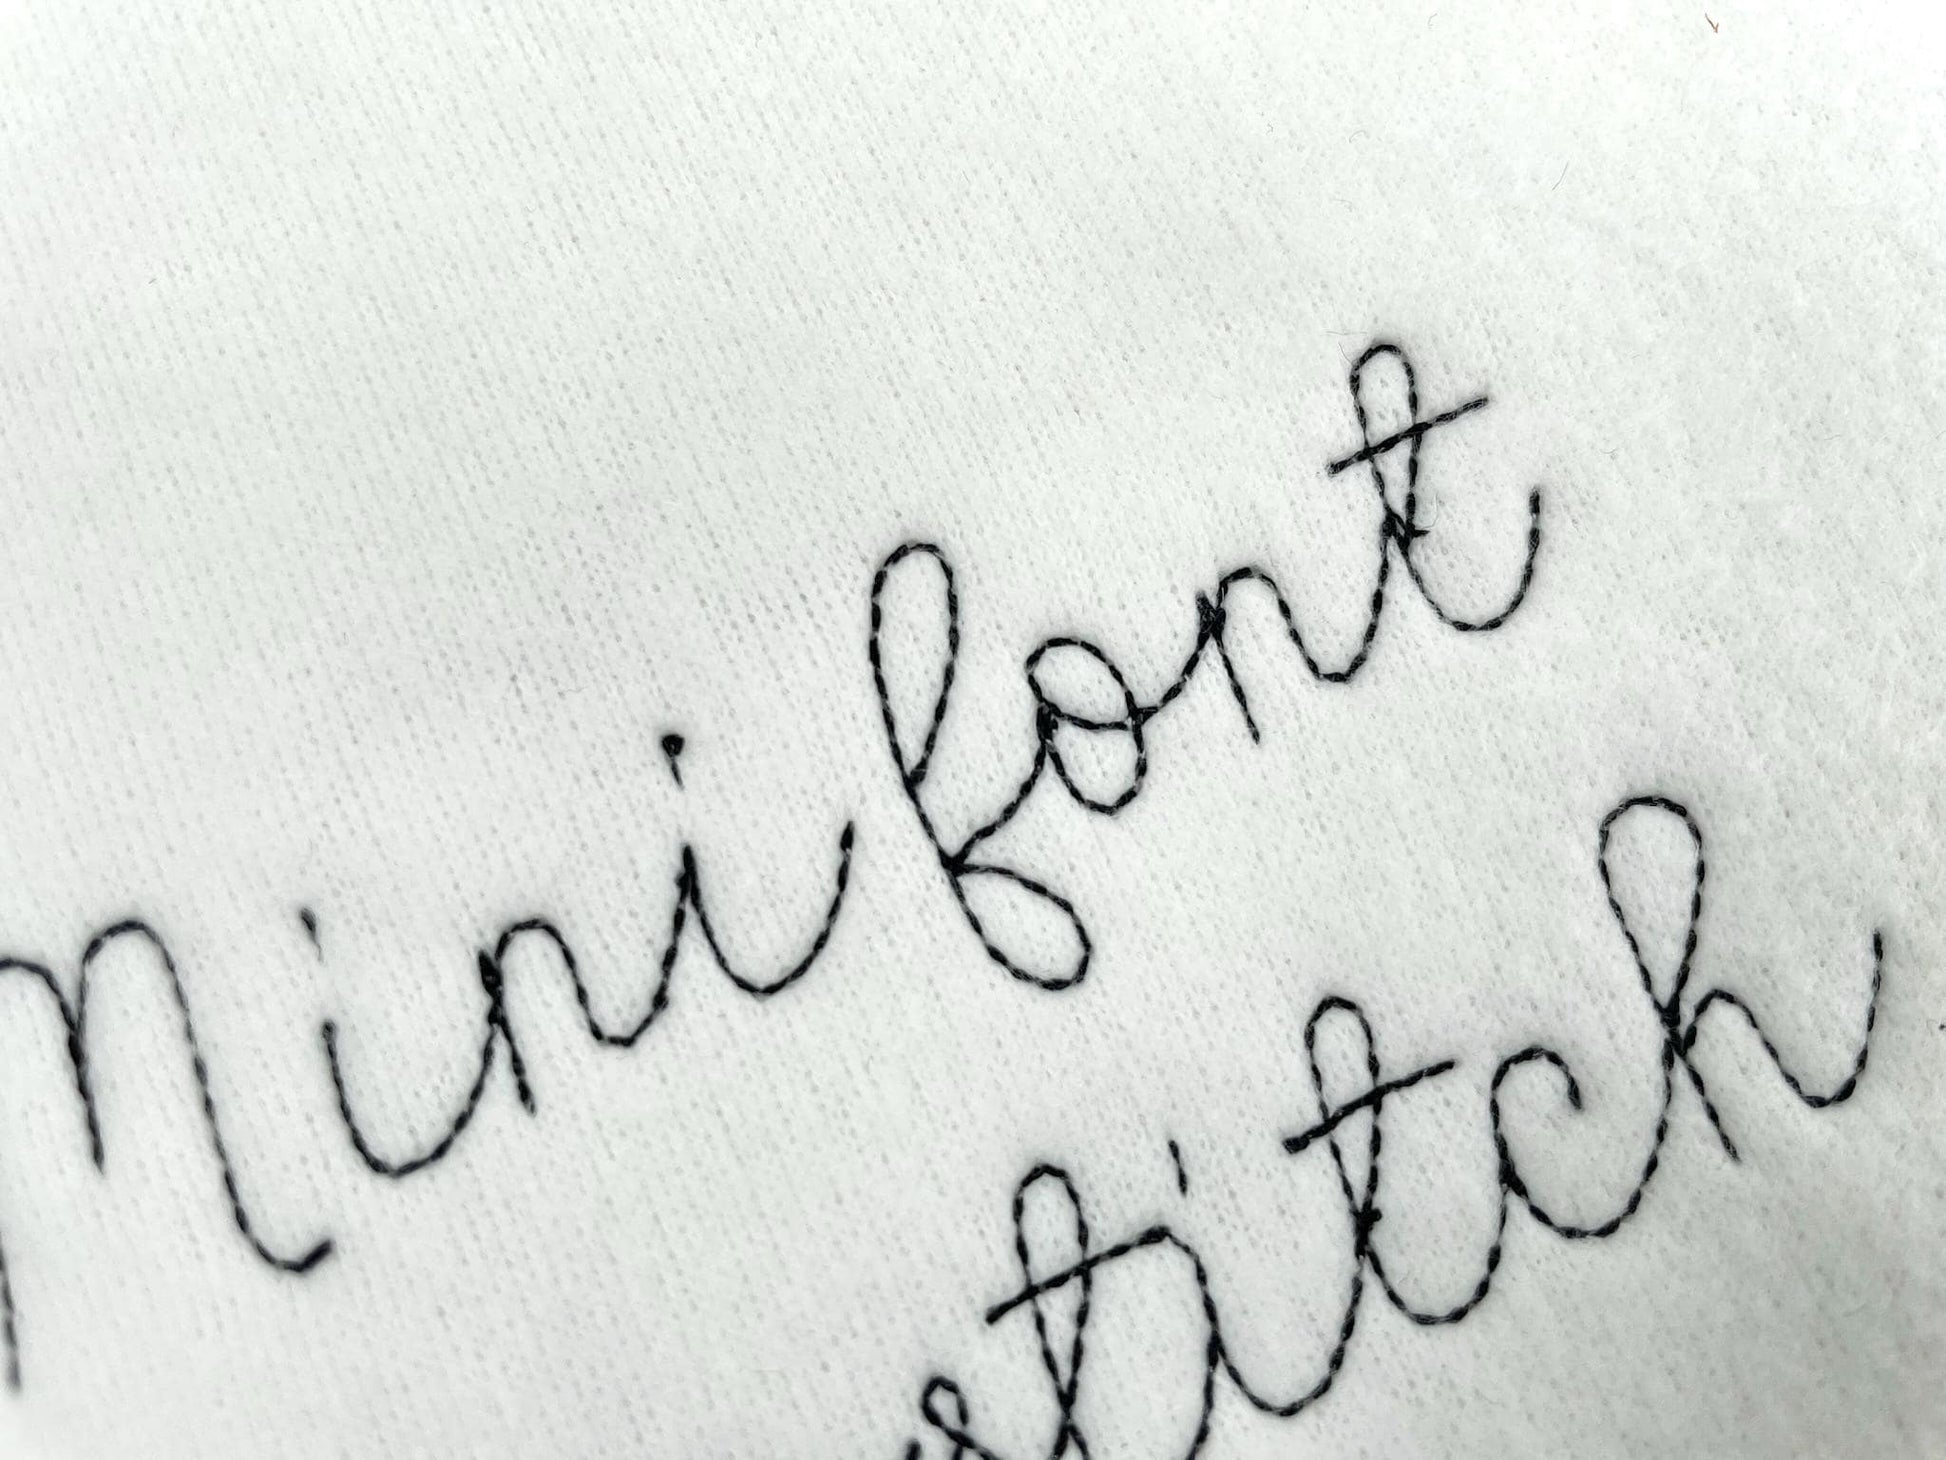 Mini font
stitch